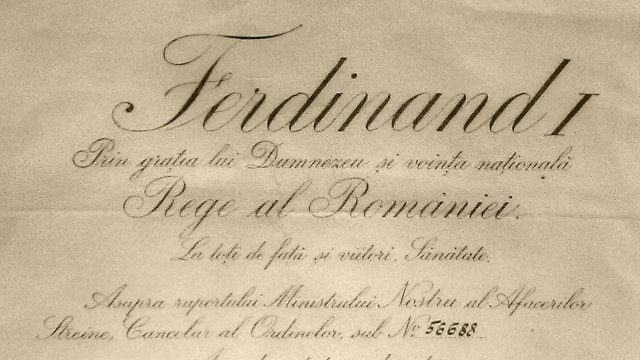 Ferdinand I
Prin grația lui Dumnezeu și voința națională
Rege al României.
La toți de față și viitori, Sănătate.
Asupra raportului Ministrului Nostru al Afacerilor
Streine, Cancelar al Ordinelor, sub No 56688